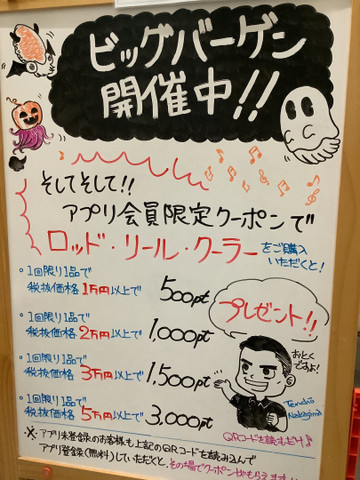 ビッグバーゲン
開催中!!
そしてそして!!
アプリ会員限定クーポンで
ロッド・リール・クーラーをご購入
いただくと!
・1回限り1品で
税抜価格1万円以上で 500pt
・1回限り1品で
税抜価格2万円以上で 1,000pt
・1回限り1品で
税抜価格3万円以上で 1,500pt
・1回限り1品で
税抜価格5万円以上で 3,000pt
プレゼント!!
おとく
ですよ!
Nakajima
QRコードを読むだけ♪
※アプリ未登録のお客様も上記のQRコードを読み込んで
アプリ登録(無料)していただくと、その場でクーポンがもらえます